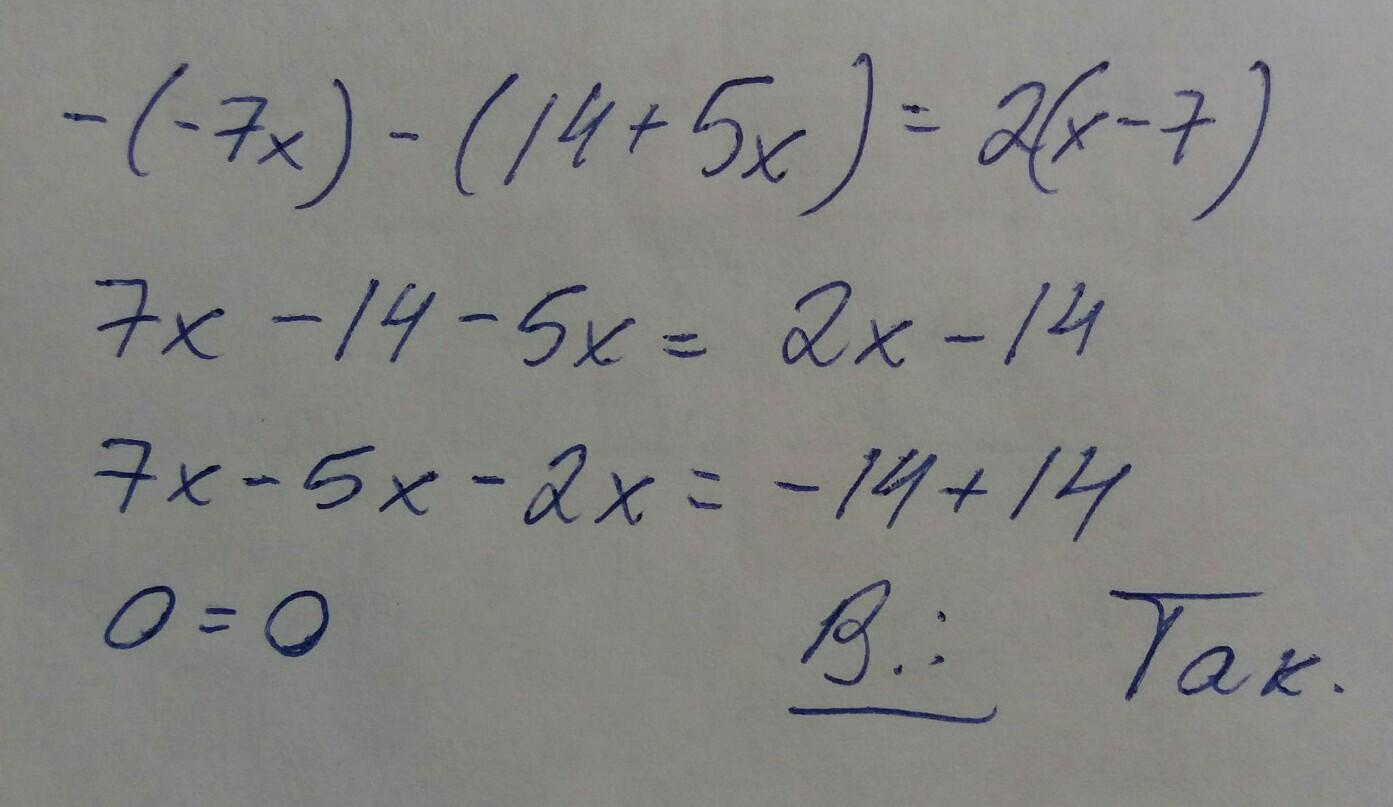 -(-7x)-(14+5x)=2(x-7)
7x-14-5x=2x-14
7x-5x-2x=-14+14
0=0 В.: Так.